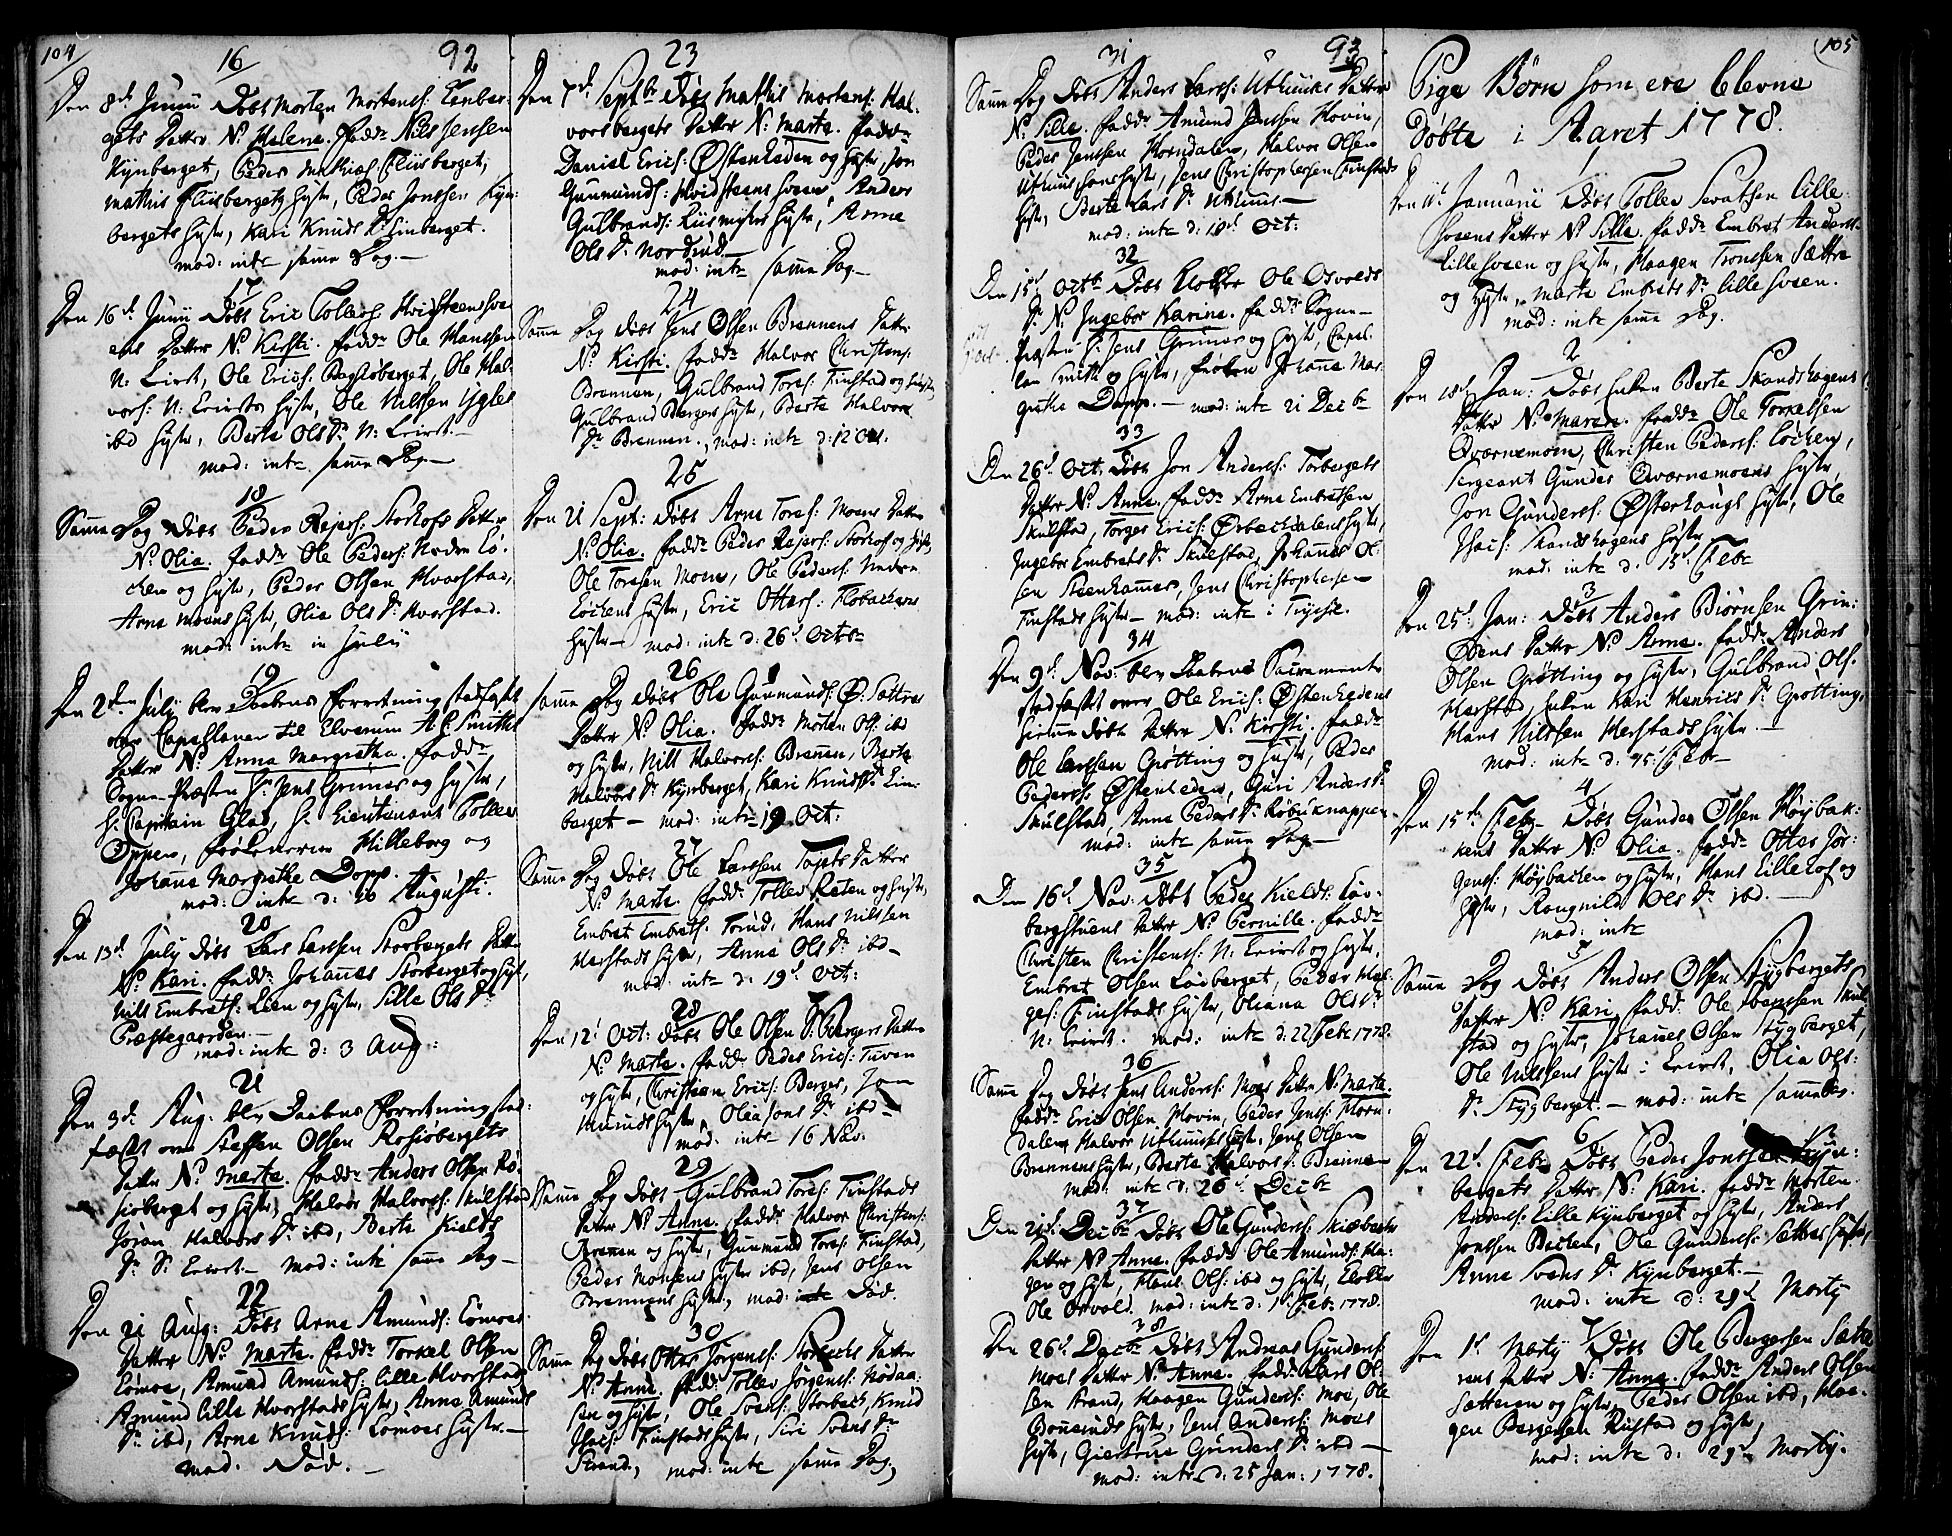 104
16
92
Den 8d Junii Døbt Morten Mortens:
gets Datter N: Helene. fadd: Nils Jensen
Kynberget, Peder Mathies: Fliisberget,
Mathis Fliisbergets Hystr, Peder Jonsen Kyn:
bergets Hystr, Kari Knuds Dr Linberget.
mod: intr samme Dag.
17
Den 16d Junii Døbt Eric Tollefs:
Datter N: Kirsti. fadd: Ole Hansen
N: Leiret, Ole Erics: Ole Hal-
vors: N: Leirets Hystr, Ole Nilssen
ibd Hystr, Berte Ols Dr N: Leiret.
mod: intr samme Dag
18
Samme Dag Døbt Peder Rejers: Storhofs Datter
N: Olia. fadd: Ole Peders: Nedre Lø-
chen og Hystr, Peder Olsen Hvarstad,
Arne Moens Hystr, Olia Ols Dr Hvarstad.
mod: intr in Julii
19
Den 2den July blev Daabens Forretning stadfæstet
over Capellanen til Elverum Smiths
Datter N: Anna Margretha. fadd:
Sogne-Præsten Hr Jens Gruner og Hystr,
Hr Capitain Glad, Hr Lieutenant Tollev
Oppen, Frøknerne Hilleborg og
Johanne Margrethe Dopp.
mod: intr d: 16 Augusti.
20
Den 13d July Døbt Lars Larssen Storbergets Datter
N: Kari. fadd: Johannes Storberget og Hystr,
Nils Embrets: Leen og Hystr, Sille Ols Dr
Præstegaarden.
mod: intr d: 3 Aug:
21
Den 3d Aug: blev Daabens Forretning stad:
fæstet over Steffen Olsen Rosiøbergets
Datter N: Marte. fadd: Anders Olsen Ro-
siøberget og Hystr, Halvor Halvors: Skulstad
Jøran Halvors Dr ibd, Berte Kields
Dr S: Leiret. mod: intr samme Dag
22
Den 21 Aug: Døbt Arne Amunds: Lømoes
Datter N: Marte. fadd: Torkel Olsen
Lømoe, Amund Amunds: Lille Hvarstad
Amund Lille Hvarstads Hystr, Anne Amunds
Dr ibd, Arne Knuds: Lømoes Hystr.
mod. Død.
23
Den 7d Septbr Døbt Mathis Mortens: Hal-
vorsbergets Datter N: Marte. fadd:
Daniel Erics: Østenheden og Hystr, Jon
Gunmunds: Hvidsteens Hystr, Anders
Gulbrands: Hystr, Arne
Ols Dr Nordsud
mod: intr samme Dag
24
Samme Dag Døbt Jens Olsen Brennens Datter
N: Kirsti. fadd: Halvor Christens:
Brennen, Gulbrand Tores: Finstad og Hystr,
Gulbrand Bergers Hystr, Berte Halvors
Dr Brennen, mod: intr d: 12 Oct.
25
Den 21 Sept: Døbt Arne Tores: Moens Datter
N: Olia. fadd: Peder Rejers: Storhof og Hystr,
Ole Toresen Moen, Ole Peders: Nedre
Løchens Hystr, Eric Otters:
Hystr mod: intr d: 26d Octr
26
Samme Dag Døbt Ole Gunmunds: Ø: Sættres
Datter N: Olia. fadd: Morten Ols: ibd
og Hystr, Nils Halvors: Brennen, Berte
Halvors Dr Kynberget, Kari Knuds Dr Lin-
berget mod: intr 19 Oct:
27
Samme Dag Døbt Ole Larssen Datter
N: Marte. fadd: Tollev og Hystr,
Embret Embrets: Hans Nilssen
Herstads Hystr, Anne Ols Dr ibd
mod: intr d: 19d Oct:
28
Den 12d Oct: Døbt Ole Olsen Datter
N: Marte. fadd: Peder Erics: Tuven
og Hystr, Christian Erics: Berger, Jon
Hystr, Olia Jons Dr ibd
mod: intr 16 Nov.
29
Samme Dag Døbt Gulbrand Tores: Finstads
Datter N: Anne. fadd: Halvor Christens:
Brennen og Hystr, Gunmund Tores: Finstad,
Peder Monsens Hystr ibd, Jens Olsen
Brennens Hystr, mod: intr Død.
30
Samme Dag Døbt Otter Jørgens: Storbechs Datter
N: Anne. fadd: Tollev Jørgens:
og Hystr, Ole Svens: Storbech, Knud
Finstads Hystr, Siri Svens Dr
Strand, mod: intr samme Dag.
31
93
Samme Dag Døbt Anders Lars: Uthuus Datter
N: Sille. fadd: Amund Jenssen Hovin,
Peder Jenssen Horndalen, Halvor Olsen
Uthuus Hystr, Jens Christophersen Finstads
Hystr, Berte Lars Dr Uthuus
mod: intr d: 18d Oct:
32
Den 15d Octbr Døbt Ole Osvolds
Dr N: Ingebor Karine. fadd: Sogne-
Præsten Hr Jens Gruner og Hystr, Capel-
lan Smith og Hystr, Frøken Johanne Mar-
grethe Dopp. mod: intr 21 Decbr
33
Den 26d Oct: Døbt Jon Anders: Torbergets
Datter N: Anne. fadd: Arne Embretsen
Skulstad, Torger Erics: Hystr,
Ingebor Embrets Dr Skulstad, Johannes Ol-
sen Steenhammer, Jens Christophersen
Finstads Hystr mod: intr i Trysil.
34
Den 9d Nov: blev Daabens Sacramente
stadfæstet over Ole Erics: Østenhedens
hiemmedøbte Datter N: Kirsti. fadd:
Ole Larssen Grøtting og Hystr, Peder
Peders: Østenheden, Guri Anders Dr
Skulstad, Anne Peders Dr
mod: intr samme Dag
35
Den 16d Nov: Døbt Peder Kields: Løv-
bergstuens Datter N: Pernille. fadd:
Christen Christens: N: Leiret og Hystr,
Embret Olsen Løvberget, Peder Hel-
ges: Finstads Hystr, Oliana Ols Dr
N: Leiret. mod: intr d: 22 Febr 1778.
36
Samme Dag Døbt Jens Anders: Moes Datter N: Marte.
fadd: Eric Olsen Hovin, Peder Jens: Horn-
dalen, Halvor Uthuuses Hystr, Jens Olsen
Brennens Hystr, Berte Halvors Dr Brennen
mod: intr d: 26d Decbr
37
Den 21d Decbr Døbt Ole Gunders: Skiæbechs
Datter N: Anne. fadd: Ole Amunds: Ha-
gen og Hystr, Hans Ols: ibd og Hystr,
Ole Osvold. mod: intr d: 1d Febr 1778.
38
Den 26d Decbr Døbt Andreas Gunders:
Moes Datter N: Anne. fadd: Lars Ol-
sen Strand, Haagen Gunders: Moe, Ole
Hystr, Jens Anders: Moes
Hystr, Giertrue Gunders Dr ibd
mod: intr d: 25 Jan: 1778.
105
Pige Børn som ere blevne
Døbte i Aaret 1778.
1
Den 11d Januarii Døbt Tollev Lille:
Hoens Datter N: Sille. fadd: Embret Anders:
Lillehoen og Hystr, Haagen Tronsen Sættre
og Hystr, Marte Embrets Dr Lillehoen.
mod: intr samme Dag.
2
Den 18d Jan: Døbt Enken Berte Skandshagens
Datter N: Maren. fadd: Ole Torkelsen
Qværnemoen, Christen Peders: Løchen,
Sergeant Gunder Qværnemoens Hystr,
Jon Gunders: Østerhaugs Hystr, Ole
Skandshagens Hystr.
mod: intr d. 15d Febr
3
Den 25d Jan: Døbt Anders Biørnsen Grin:
Datter N: Anne. fadd: Anders
Olsen Grøtting og Hystr, Gulbrand Ols.
Herstad, Enken Kari Henrics Dr Grøtting,
Hans Nilssen Herstads Hystr.
mod: intr d. 15d Febr
4
Den 15d Febr Døbt Gunder Olsen Høybak:
kens Datter N: Olia. fadd: Otter Jør-
gens: Høybachen og Hystr, Hans Lille og
Hystr, Rangnild Ols Dr ibd.
mod: intr
5
Samme Dag Døbt Anders Olsen Stygbergets
Datter N: Kari. fadd: Ole Skul-
stad og Hystr, Johannes Olsen Stygberget,
Ole Nilssens Hystr i Leiret, Olia Ols:
Dr Stygberget. mod: intr
6
Den 22d Febr Døbt Peder Jonsen Kyn:
bergets Datter N: Kari. fadd: Morten
Anders: Lille Kynberget og Hystr, Anders
Jonssen Bechen, Ole Gunders: Sættres Hystr,
Anne Svens Dr Kynberget.
mod: intr d: 29d Martij
7
Den 1d Martij Døbt Ole Bergersen Sætte-
rens Datter N: Anne. fadd: Anders Olsen
Sætteren og Hystr, Peder Olsen ibd, Haa-
gen Bergersen Rustad og Hystr,
mod: intr d: 29d Martij.